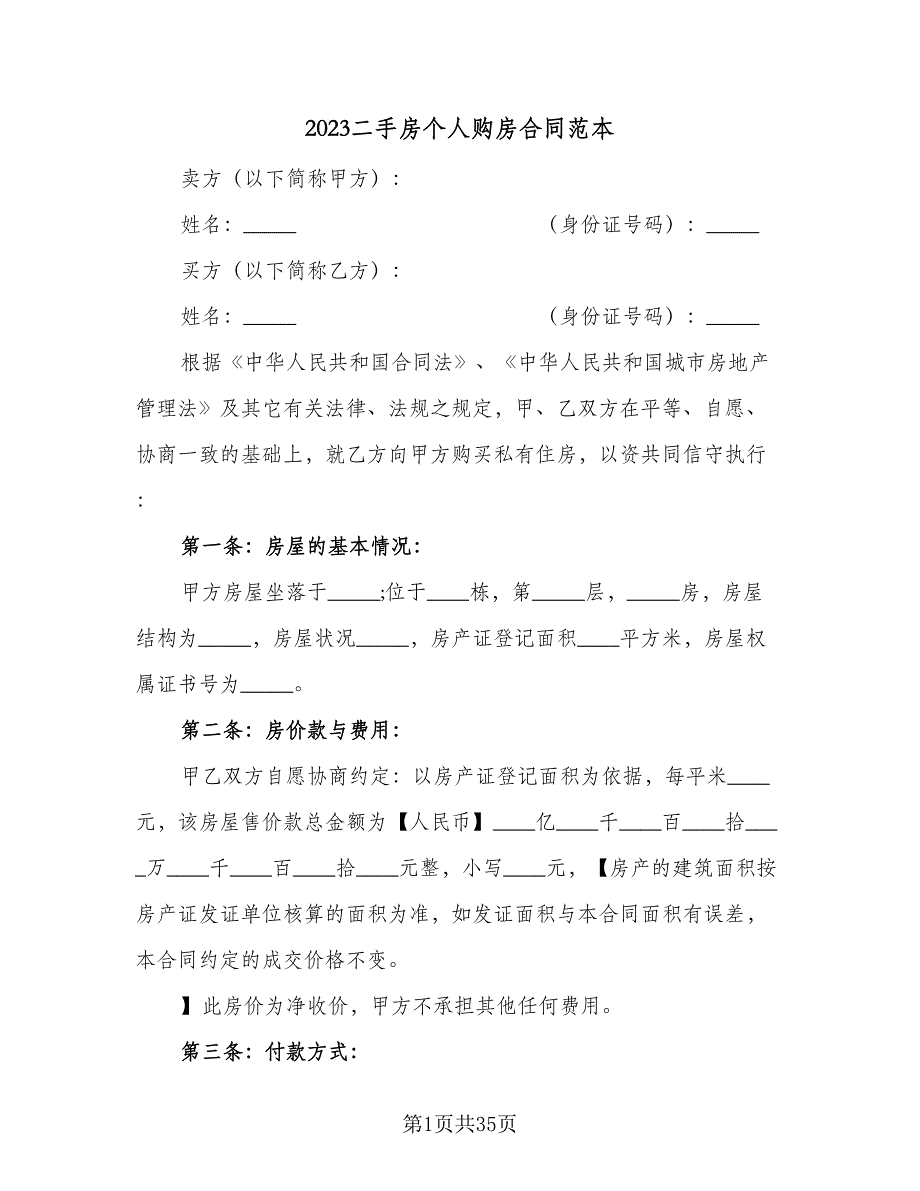 2023二手房个人购房合同范本
卖方（以下简称甲方）：
姓名：_____ （身份证号码）：_____
买方（以下简称乙方）：
姓名：_____ （身份证号码）：_____
根据《中华人民共和国合同法》、《中华人民共和国城市房地产
管理法》及其它有关法律、法规之规定，甲、乙双方在平等、自愿、
协商一致的基础上，就乙方向甲方购买私有住房，以资共同信守执行
：
第一条：房屋的基本情况：
甲方房屋坐落于_____;位于____栋，第_____层，_____房，房屋
结构为_____，房屋状况_____，房产证登记面积____平方米，房屋权
属证书号为_____。
第二条：房价款与费用：
甲乙双方自愿协商约定：以房产证登记面积为依据，每平米____
元，该房屋售价款总金额为【人民币】____亿____千____百____拾___
_万____千____百____拾____元整，小写____元，【房产的建筑面积按
房产证发证单位核算的面积为准，如发证面积与本合同面积有误差，
本合同约定的成交价格不变。
】此房价为净收价，甲方不承担其他任何费用。
第三条：付款方式：
第1页共35页